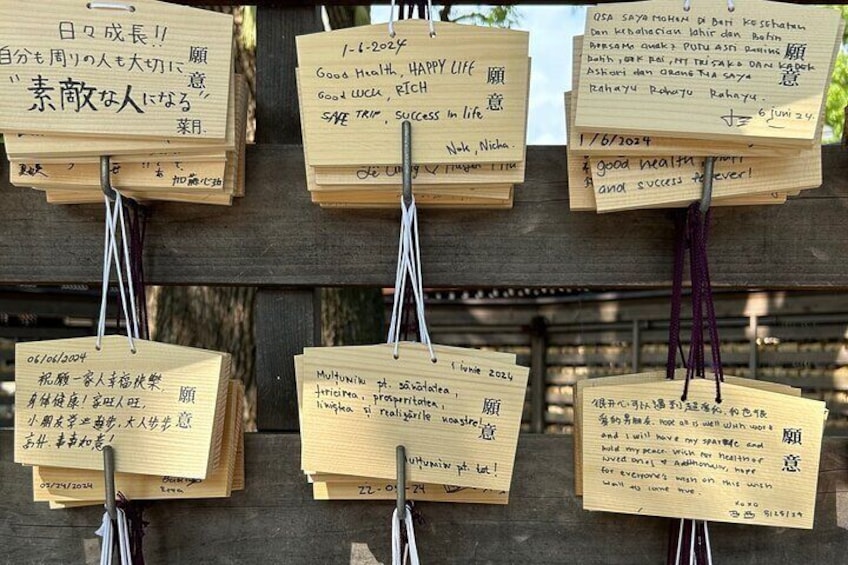 日々成長!!
自分も周りの人も大切に
"素敵な人になる"
葉月.
願意
加藤心功
1-6-2024
Good Health, HAPPY LIFE
Good LUCK, RICH
SAFE TRIP, success in life
Nok, Nicha.
願意
OSA SAYA MOHON Di BeRi KeSeHatan
Dan kebahagian lahir Dan Batin
Bersama anak2 PUTU ASRI
DAN KADEK
Askori dan orang TUA SAYA
Rahayu Rahayu Rahayu.
6 juni 24
願意
1/6/2024
good health
and success forever!
06/06/2024
祝願一家人幸福快樂
身体健康!家旺人旺,
小朋友学业進步,大人步步
高升,事事如意!
願意
02/24/2024
1 iunie 2024
Mulțumiu pt. sănătatea,
fericirea, prosperitatea,
liniștea și realizările noastre!
Mulțumiu pt. tot!
願意
22-0
很开心可以遇到超爱我,我也很
爱的男朋友. Hope all is well with work
and I will have my spark and
hold my peace. Wish for health for
loved ones & Additionally, hope
for everyone's wish on this wish
wall to come true.
xoxo
5/28/24
願意